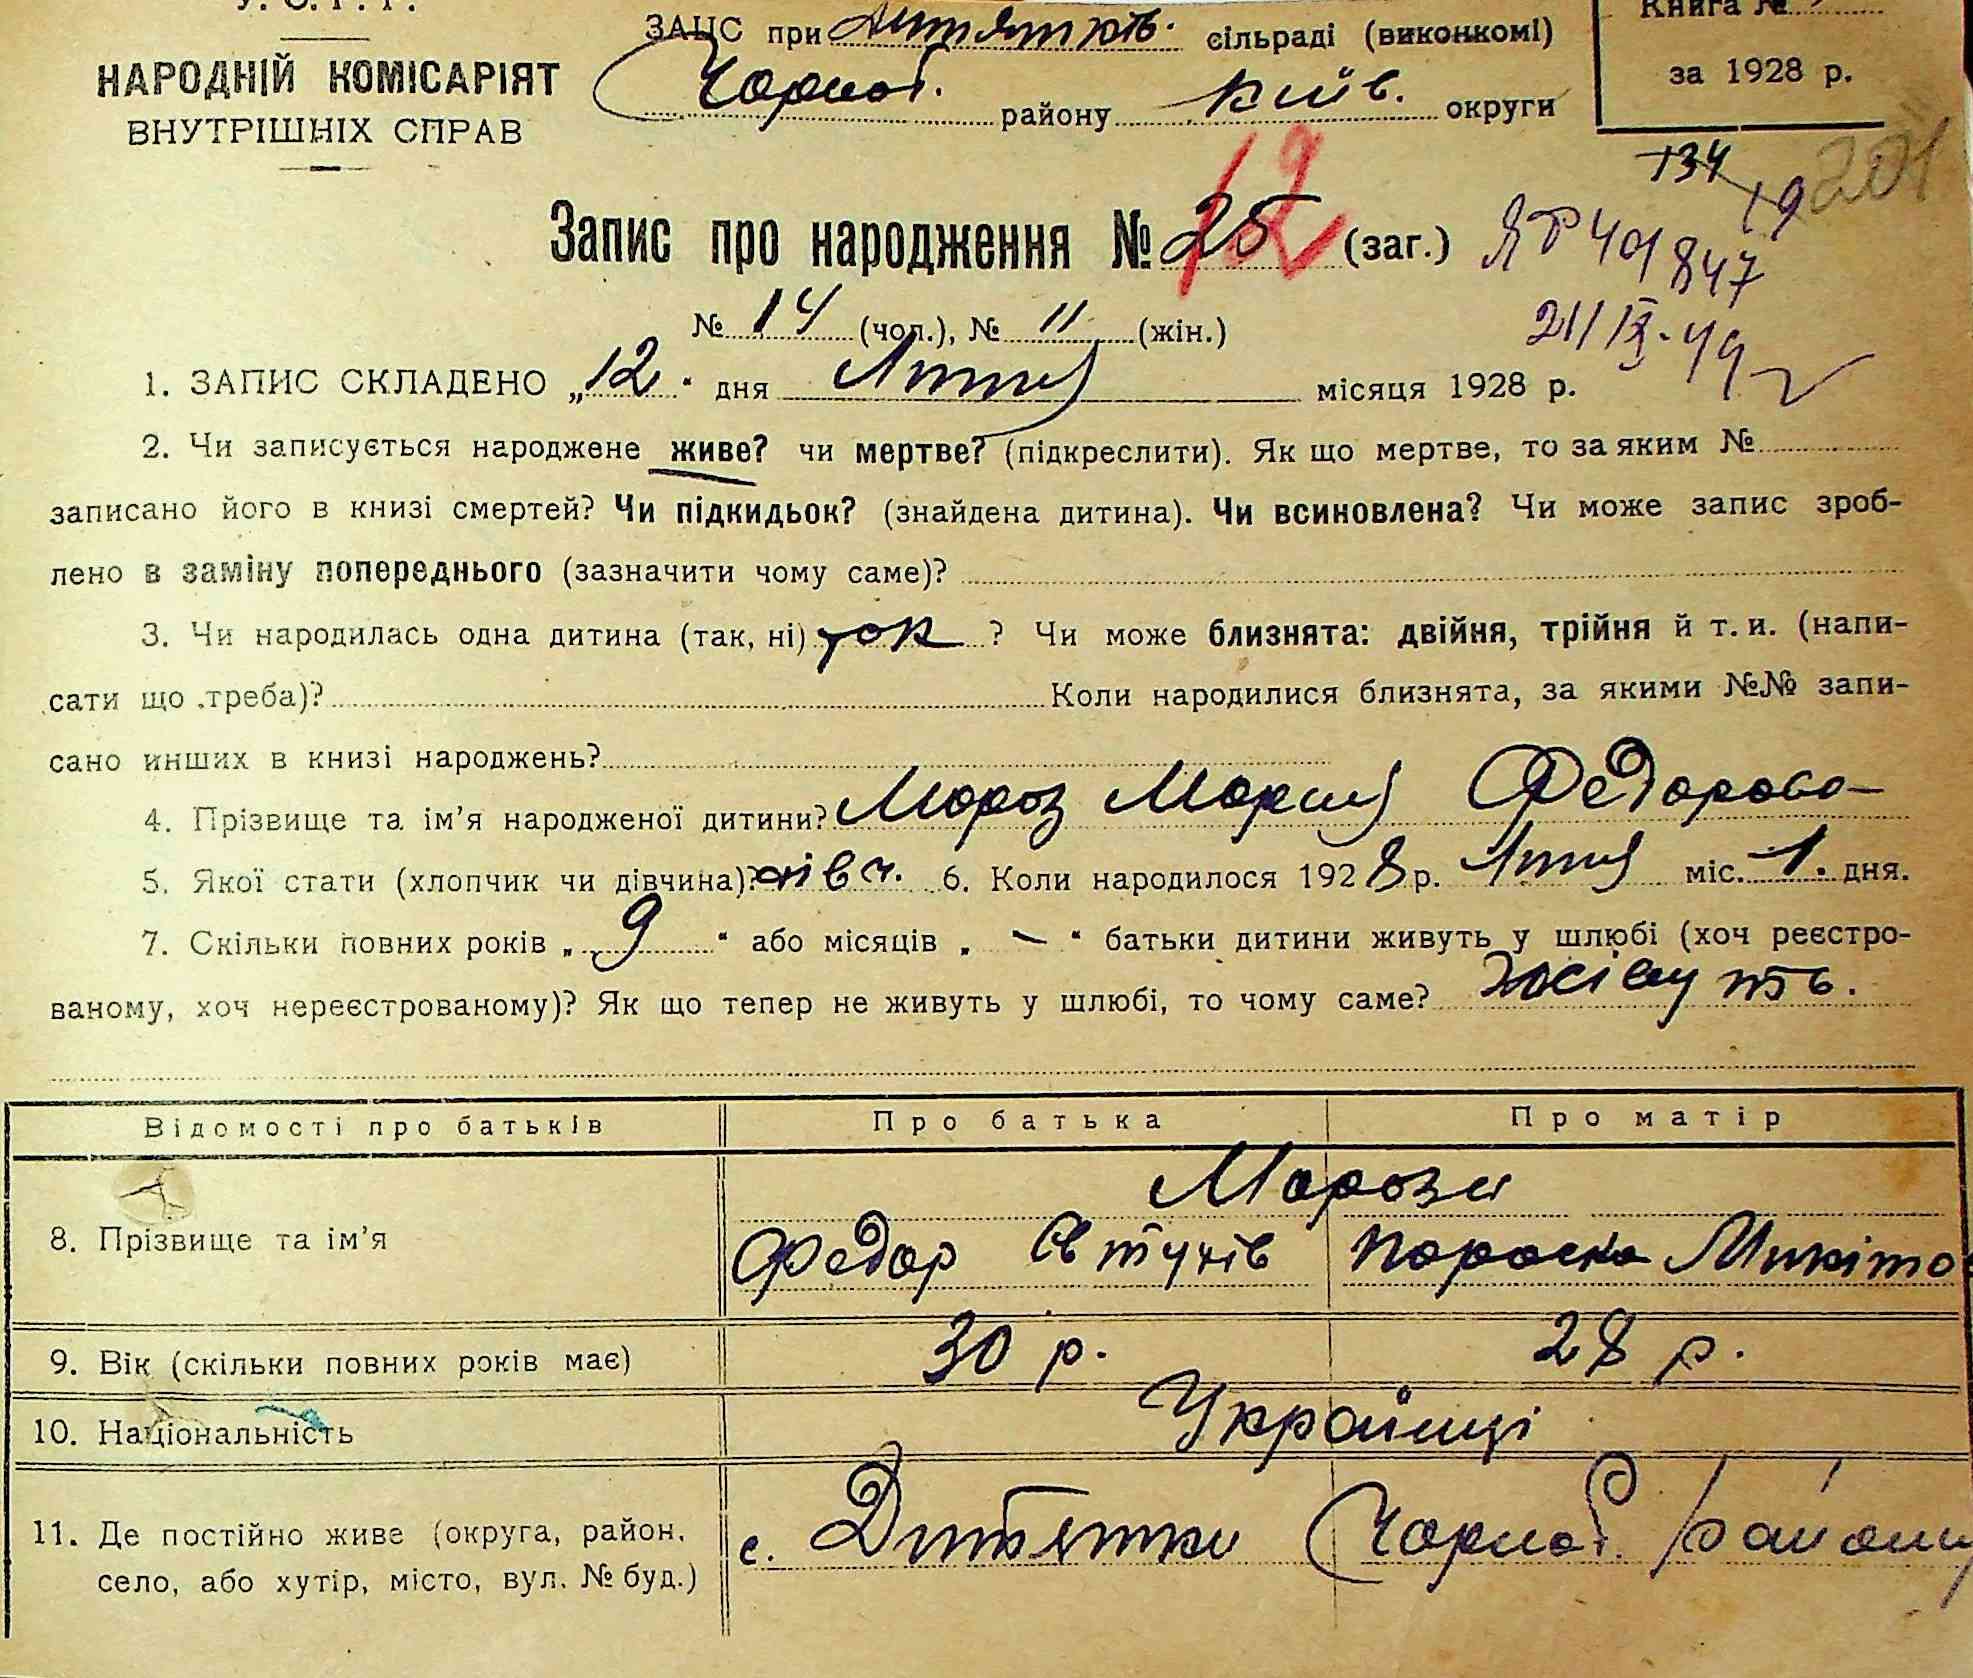 У. С. Р. Р.
НАРОДНІЙ КОМІСАРІЯТ
ВНУТРІШНІХ СПРАВ
ЗАЦС при Дитятків. сільраді (виконкомі)
Чорноб. району Київ. округи
Книга №
за 1928 р.
134
19
201
Запис про народження № 25 (заг.)
12
ЯР 401847
№ 14 (чол.), № 11 (жін.)
21/IX-49
1. ЗАПИС СКЛАДЕНО „12“ дня Лютня місяця 1928 р.
2. Чи записується народжене живе? чи мертве? (підкреслити). Як що мертве, то за яким №
записано його в книзі смертей? Чи підкидьок? (знайдена дитина). Чи всиновлена? Чи може запис зроб-
лено в заміну попереднього (зазначити чому саме)?
3. Чи народилась одна дитина (так, ні) так ? Чи може близнята: двійня, трійня й т. и. (напи-
сати що треба)? Коли народилися близнята, за якими №№ запи-
сано инших в книзі народжень?
4. Прізвище та ім’я народженої дитини? Мороз Марія Федорова
5. Якої стати (хлопчик чи дівчина)? дівч. 6. Коли народилося 1928 р. Лютня міс. 1. дня.
7. Скільки повних років „ 9 “ або місяців „ — “ батьки дитини живуть у шлюбі (хоч реєстро-
ваному, хоч нереєстрованому)? Як що тепер не живуть у шлюбі, то чому саме? живуть.
Відомості про батьків Про батька Про матір
Морози
8. Прізвище та ім’я Федор Євтухів Параска Микіто
9. Вік (скільки повних років має) 30 р. 28 р.
10. Національність Українці
11. Де постійно живе (округа, район, с. Дитятки Чорноб. району
село, або хутір, місто, вул. № буд.)